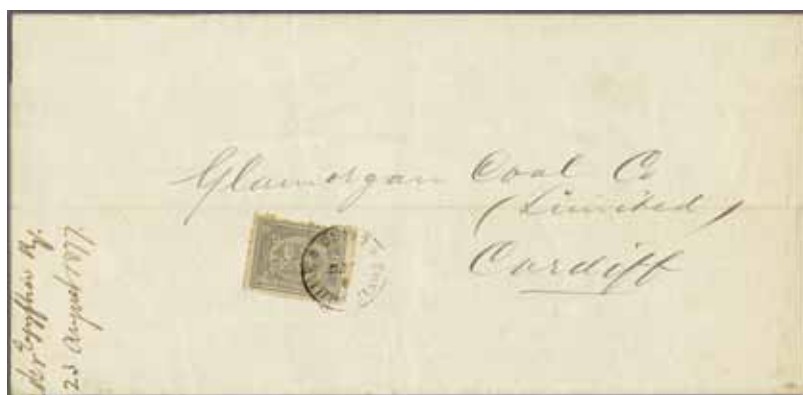 Glamorgan Coal Co
(Limited)
Cardiff
Egyptian Ry.
23 August 1877